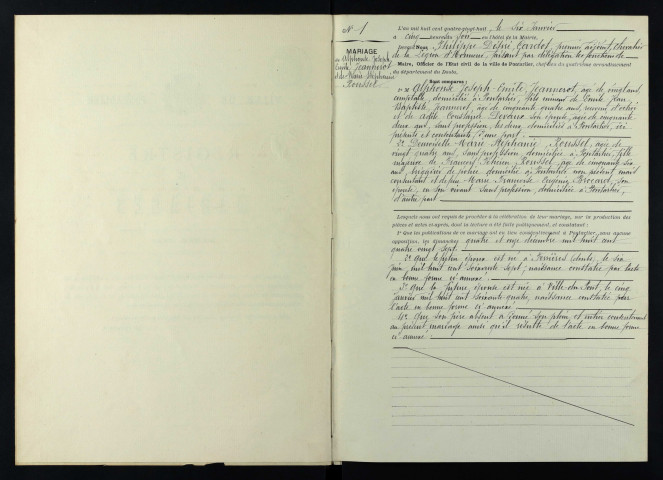 N° 1
MARIAGE
de Alphonse Joseph
Emile Jeannerot
et de Marie Stéphanie
Rousset
L'an mil huit cent quatre-vingt-huit, le six Janvier
à cinq heures du soir en l'hôtel de la Mairie,
par devant Nous Philippe Désiré Gardot, premier adjoint, chevalier
de la Légion d'Honneur, faisant par délégation les fonctions de
Maire, Officier de l'État civil de la ville de Pontarlier, chef-lieu du quatrième arrondissement
du département du Doubs,
Sont comparus:
1° M Alphonse Joseph Emile Jeannerot, âgé de vingt ans,
comptable, domicilié à Pontarlier, fils mineur de Emile Jean
Baptiste Jeannerot, âgé de cinquante quatre ans,
et de Adèle Constance Devaux son épouse, âgée de cinquante
deux ans, sans profession, les deux domiciliés à Pontarlier, ici
présents et consentants, d'une part.
2° Demoiselle Marie Stéphanie Rousset, âgée de
vingt quatre ans, sans profession, domiciliée à Pontarlier, fille
majeure de François Rousset, âgé de cinquante six
ans, brigadier de police domicilié à Pontarlier non présent mais
consentant et de feu Marie Françoise Eugénie
épouse, en son vivant sans profession, domiciliée à Pontarlier,
d'autre part
Lesquels nous ont requis de procéder à la célébration de leur mariage, sur la production des
pièces et actes ci-après, dont la lecture a été faite publiquement, et constatant:
1° Que les publications de ce mariage ont eu lieu consécutivement à Pontarlier, sans aucune
opposition, les dimanches quatre et onze décembre mil huit cent
quatre vingt sept.
2° Que le futur époux est né à Ferrières, le six
Juin, mil huit cent soixante sept, naissance constatée par l'acte
en bonne forme ci annexé
3° Que la future épouse est née à Ville du Pont, le cinq
Janvier mil huit cent soixante quatre, naissance constatée par
l'acte en bonne forme ci annexé
4° Que son père absent a donné son plein et entier consentement
au présent mariage ainsi qu'il résulte de l'acte en bonne forme
ci annexé